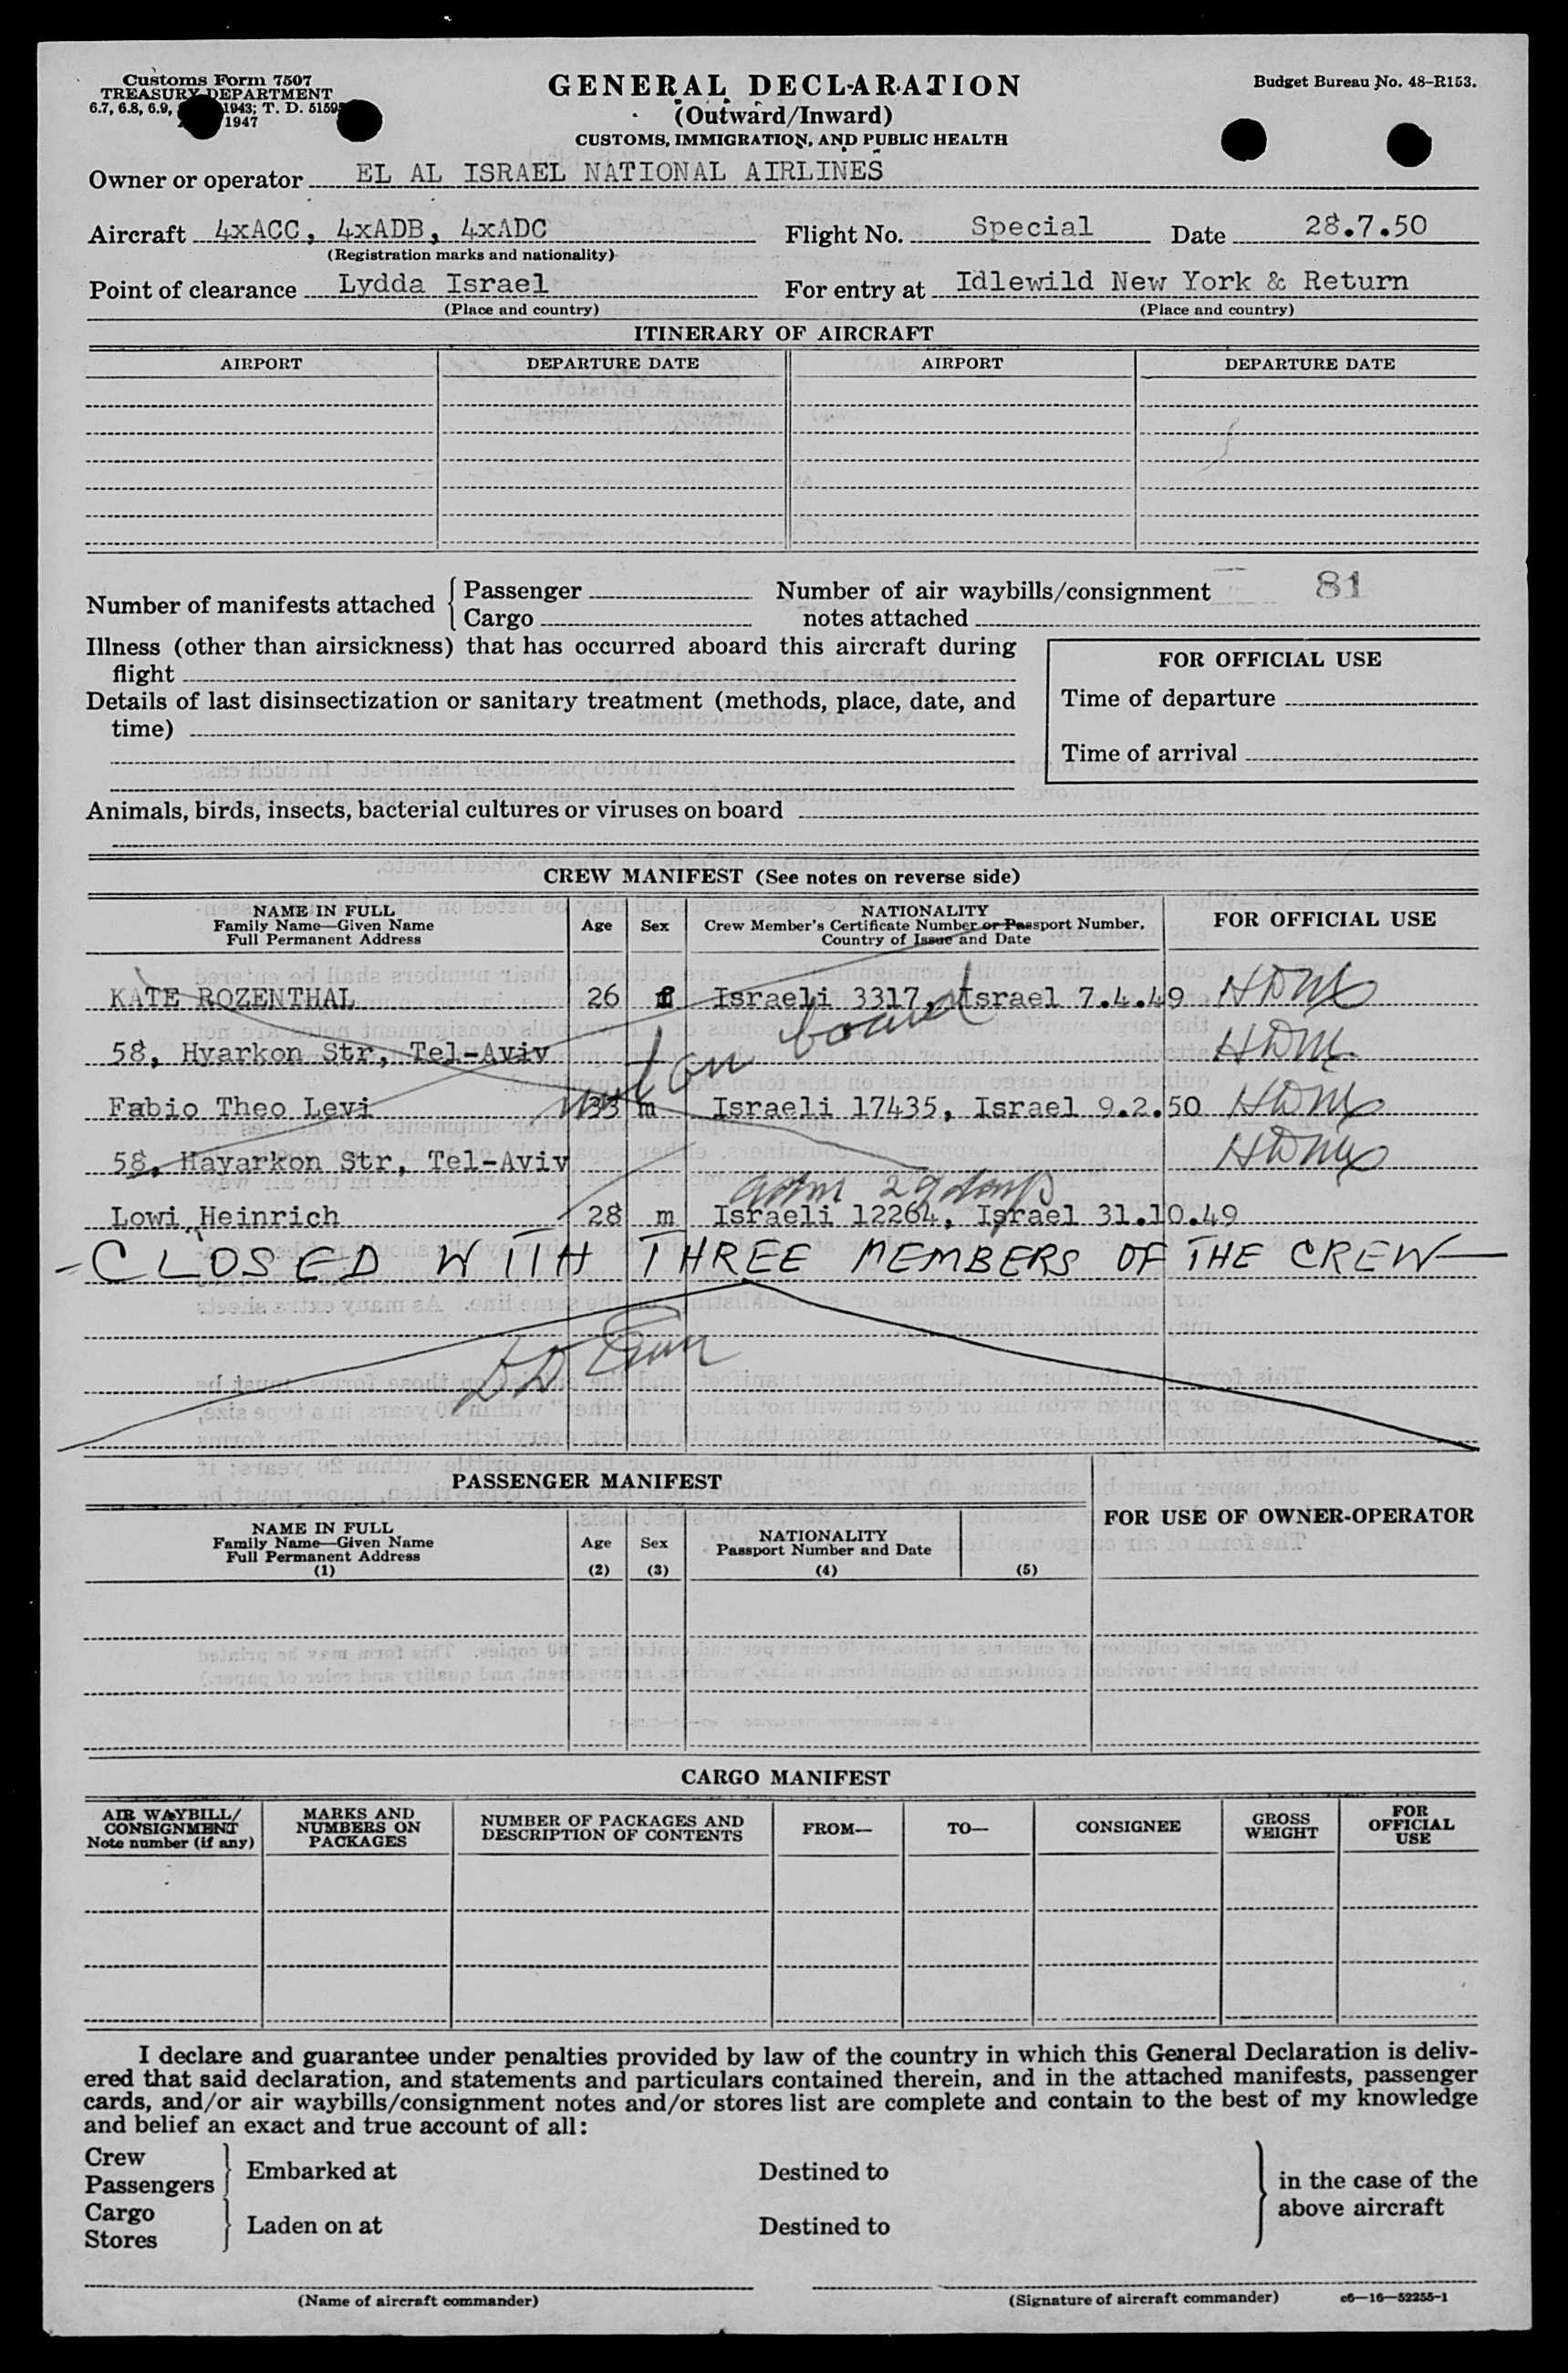 Customs Form 7507
TREASURY DEPARTMENT
6.7, 6.8, 6.9, 1943; T. D. 5159
1947
GENERAL DECLARATION
(Outward/Inward)
CUSTOMS, IMMIGRATION, AND PUBLIC HEALTH
Budget Bureau No. 48-R153.
Owner or operator EL AL ISRAEL NATIONAL AIRLINES
Aircraft 4xACC, 4xADB, 4xADC Flight No. Special Date 28.7.50
(Registration marks and nationality)
Point of clearance Lydda Israel For entry at Idlewild New York & Return
(Place and country) (Place and country)
ITINERARY OF AIRCRAFT
AIRPORT DEPARTURE DATE AIRPORT DEPARTURE DATE
Number of manifests attached { Passenger
Cargo
Number of air waybills/consignment 81
notes attached
Illness (other than airsickness) that has occurred aboard this aircraft during
flight
Details of last disinsectization or sanitary treatment (methods, place, date, and
time)
FOR OFFICIAL USE
Time of departure
Time of arrival
Animals, birds, insects, bacterial cultures or viruses on board
CREW MANIFEST (See notes on reverse side)
NAME IN FULL
Family Name—Given Name
Full Permanent Address
Age
Sex
NATIONALITY
Crew Member's Certificate Number or Passport Number,
Country of Issue and Date
FOR OFFICIAL USE
KATE ROZENTHAL 26 f Israeli 3317, Israel 7.4.49
58, Hyarkon Str, Tel-Aviv
not on board
Fabio Theo Levi 33 m Israeli 17435, Israel 9.2.50
58, Hayarkon Str, Tel-Aviv
adm 29 days
Lowi Heinrich 28 m Israeli 12264, Israel 31.10.49
- CLOSED WITH THREE MEMBERS OF THE CREW —
PASSENGER MANIFEST
NAME IN FULL
Family Name—Given Name
Full Permanent Address
(1)
Age
(2)
Sex
(3)
NATIONALITY
Passport Number and Date
(4)
(5)
FOR USE OF OWNER-OPERATOR
CARGO MANIFEST
AIR WAYBILL/
CONSIGNMENT
Note number (if any)
MARKS AND
NUMBERS ON
PACKAGES
NUMBER OF PACKAGES AND
DESCRIPTION OF CONTENTS
FROM—
TO—
CONSIGNEE
GROSS
WEIGHT
FOR
OFFICIAL
USE
I declare and guarantee under penalties provided by law of the country in which this General Declaration is deliv-
ered that said declaration, and statements and particulars contained therein, and in the attached manifests, passenger
cards, and/or air waybills/consignment notes and/or stores list are complete and contain to the best of my knowledge
and belief an exact and true account of all:
Crew
Passengers } Embarked at Destined to
Cargo
Stores } Laden on at Destined to
} in the case of the
above aircraft
(Name of aircraft commander) (Signature of aircraft commander) c6—16—52255-1